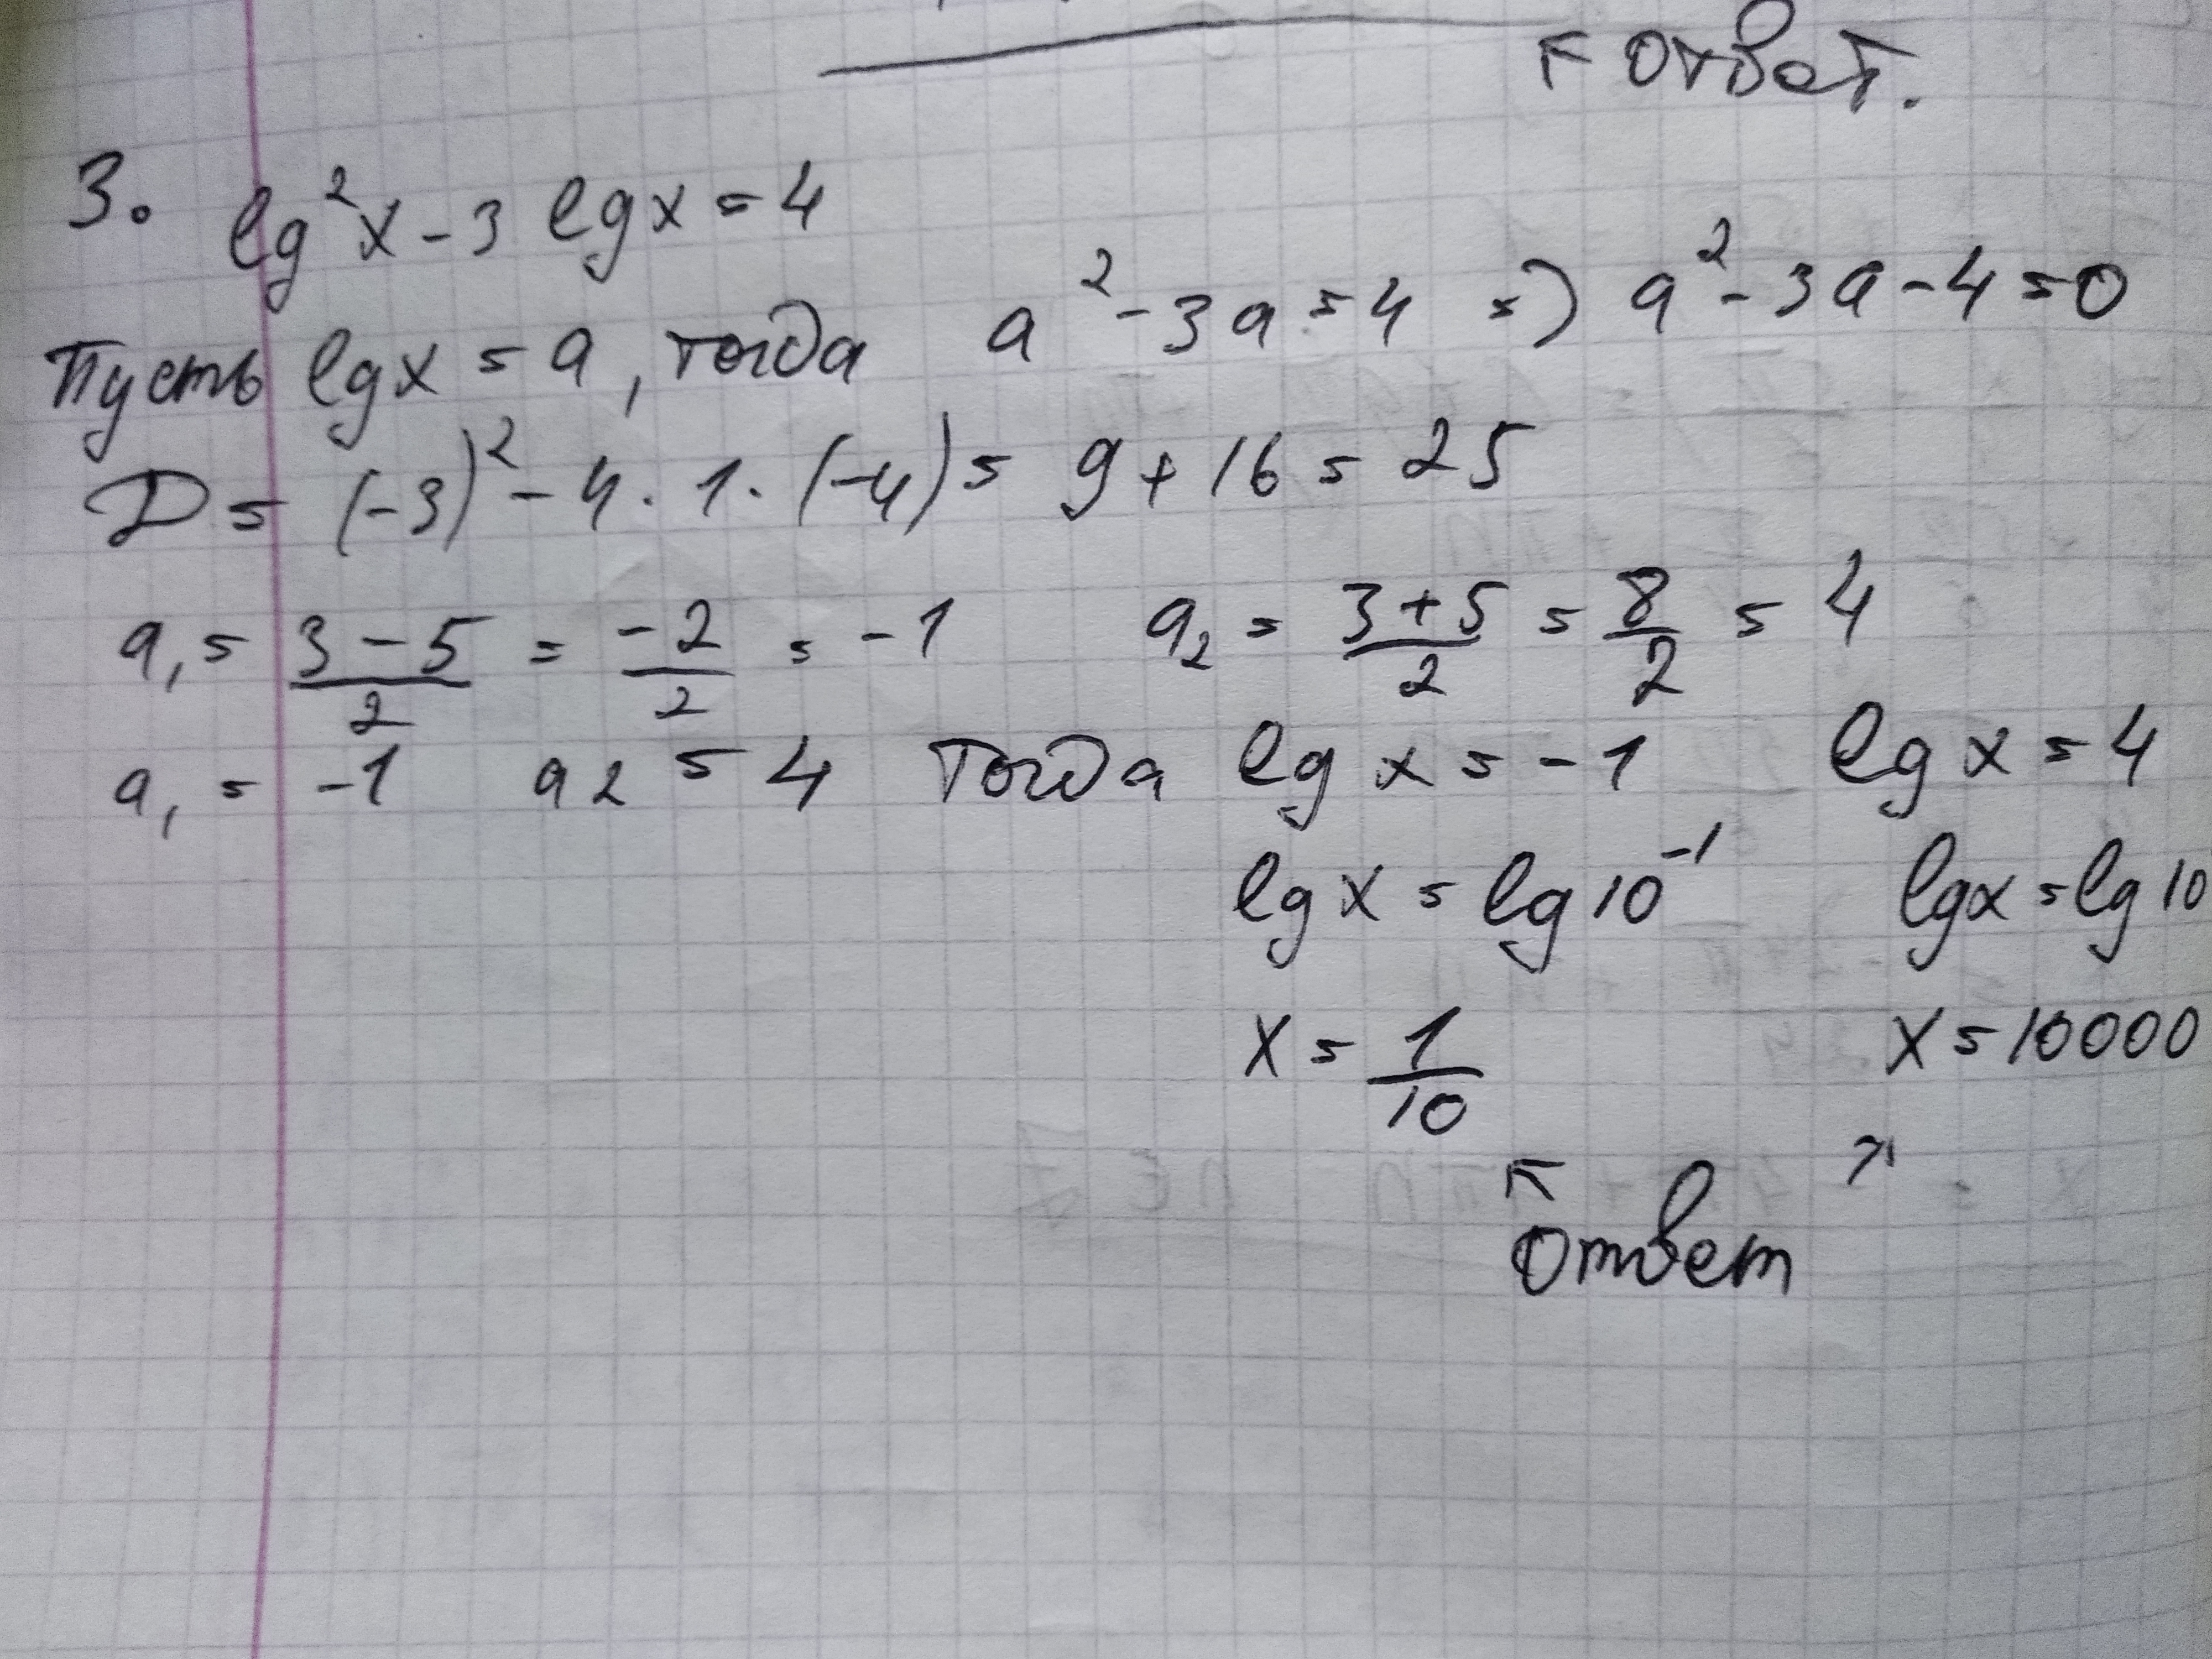 ответ.
3. lg²x - 3 lgx = 4
Пусть lgx = a, тогда a² - 3a = 4 => a² - 3a - 4 = 0
D = (-3)² - 4 · 1 · (-4) = 9 + 16 = 25
a₁ = (3 - 5)/2 = -2/2 = -1 a₂ = (3 + 5)/2 = 8/2 = 4
a₁ = -1 a2 = 4 Тогда lg x = -1 lg x = 4
lg x = lg 10⁻¹ lgx = lg 10
x = 1/10 x = 10000
ответ